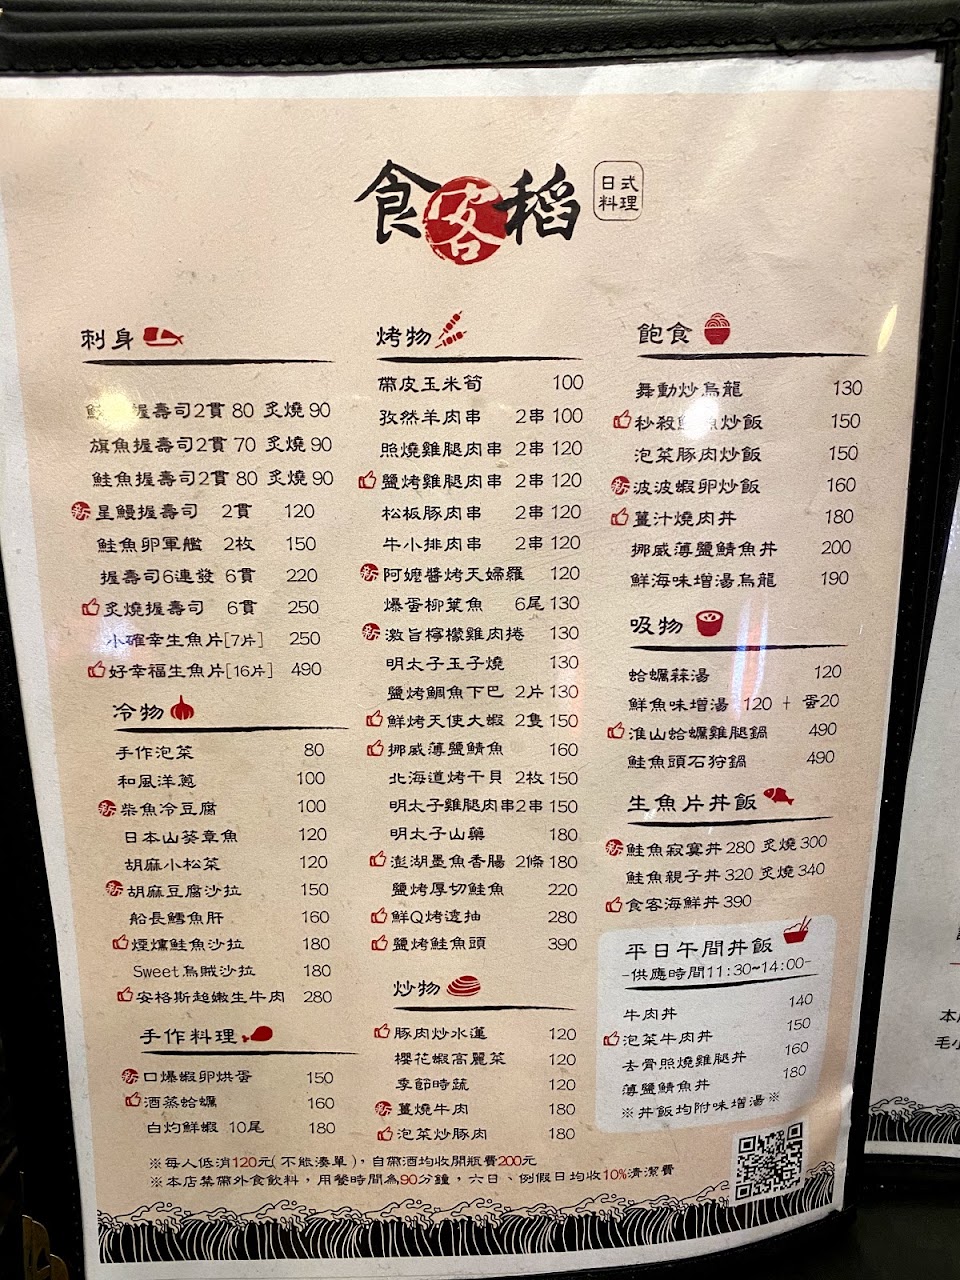 食客稻 日式料理
刺身
握壽司2貫 80 炙燒 90
旗魚握壽司2貫 70 炙燒 90
鮭魚握壽司2貫 80 炙燒 90
新 星鰻握壽司 2貫 120
鮭魚卵軍艦 2枚 150
握壽司6連發 6貫 220
炙燒握壽司 6貫 250
小確幸生魚片[7片] 250
好幸福生魚片[16片] 490
冷物
手作泡菜 80
和風洋蔥 100
新 柴魚冷豆腐 100
日本山葵章魚 120
胡麻小松菜 120
新 胡麻豆腐沙拉 150
船長鱈魚肝 160
煙燻鮭魚沙拉 180
Sweet烏賊沙拉 180
安格斯超嫩生牛肉 280
手作料理
新 口爆蝦卵烘蛋 150
酒蒸蛤蠣 160
白灼鮮蝦 10尾 180
烤物
帶皮玉米筍 100
孜然羊肉串 2串 100
照燒雞腿肉串 2串 120
鹽烤雞腿肉串 2串 120
松板豚肉串 2串 120
牛小排肉串 2串 120
新 阿嬤醬烤天婦羅 120
爆蛋柳葉魚 6尾 130
新 激旨檸檬雞肉捲 130
明太子玉子燒 130
鹽烤鯛魚下巴 2片 130
鮮烤天使大蝦 2隻 150
挪威薄鹽鯖魚 160
北海道烤干貝 2枚 150
明太子雞腿肉串2串 150
明太子山藥 180
澎湖墨魚香腸 2條 180
鹽烤厚切鮭魚 220
鮮Q烤透抽 280
鹽烤鮭魚頭 390
炒物
豚肉炒水蓮 120
櫻花蝦高麗菜 120
季節時蔬 120
新 薑燒牛肉 180
泡菜炒豚肉 180
飽食
舞動炒烏龍 130
秒殺 炒飯 150
泡菜豚肉炒飯 150
新 波波蝦卵炒飯 160
薑汁燒肉丼 180
挪威薄鹽鯖魚丼 200
鮮海味增湯烏龍 190
吸物
蛤蠣蒜湯 120
鮮魚味增湯 120 + 蛋20
淮山蛤蠣雞腿鍋 490
鮭魚頭石狩鍋 490
生魚片丼飯
新 鮭魚寂寞丼 280 炙燒 300
鮭魚親子丼 320 炙燒 340
食客海鮮丼 390
平日午間丼飯
-供應時間11:30~14:00-
牛肉丼 140
泡菜牛肉丼 150
去骨照燒雞腿丼 160
薄鹽鯖魚丼 180
※丼飯均附味增湯※
※每人低消120元(不能湊單)，自帶酒均收開瓶費200元
※本店禁帶外食飲料，用餐時間為90分鐘，六日、例假日均收10%清潔費